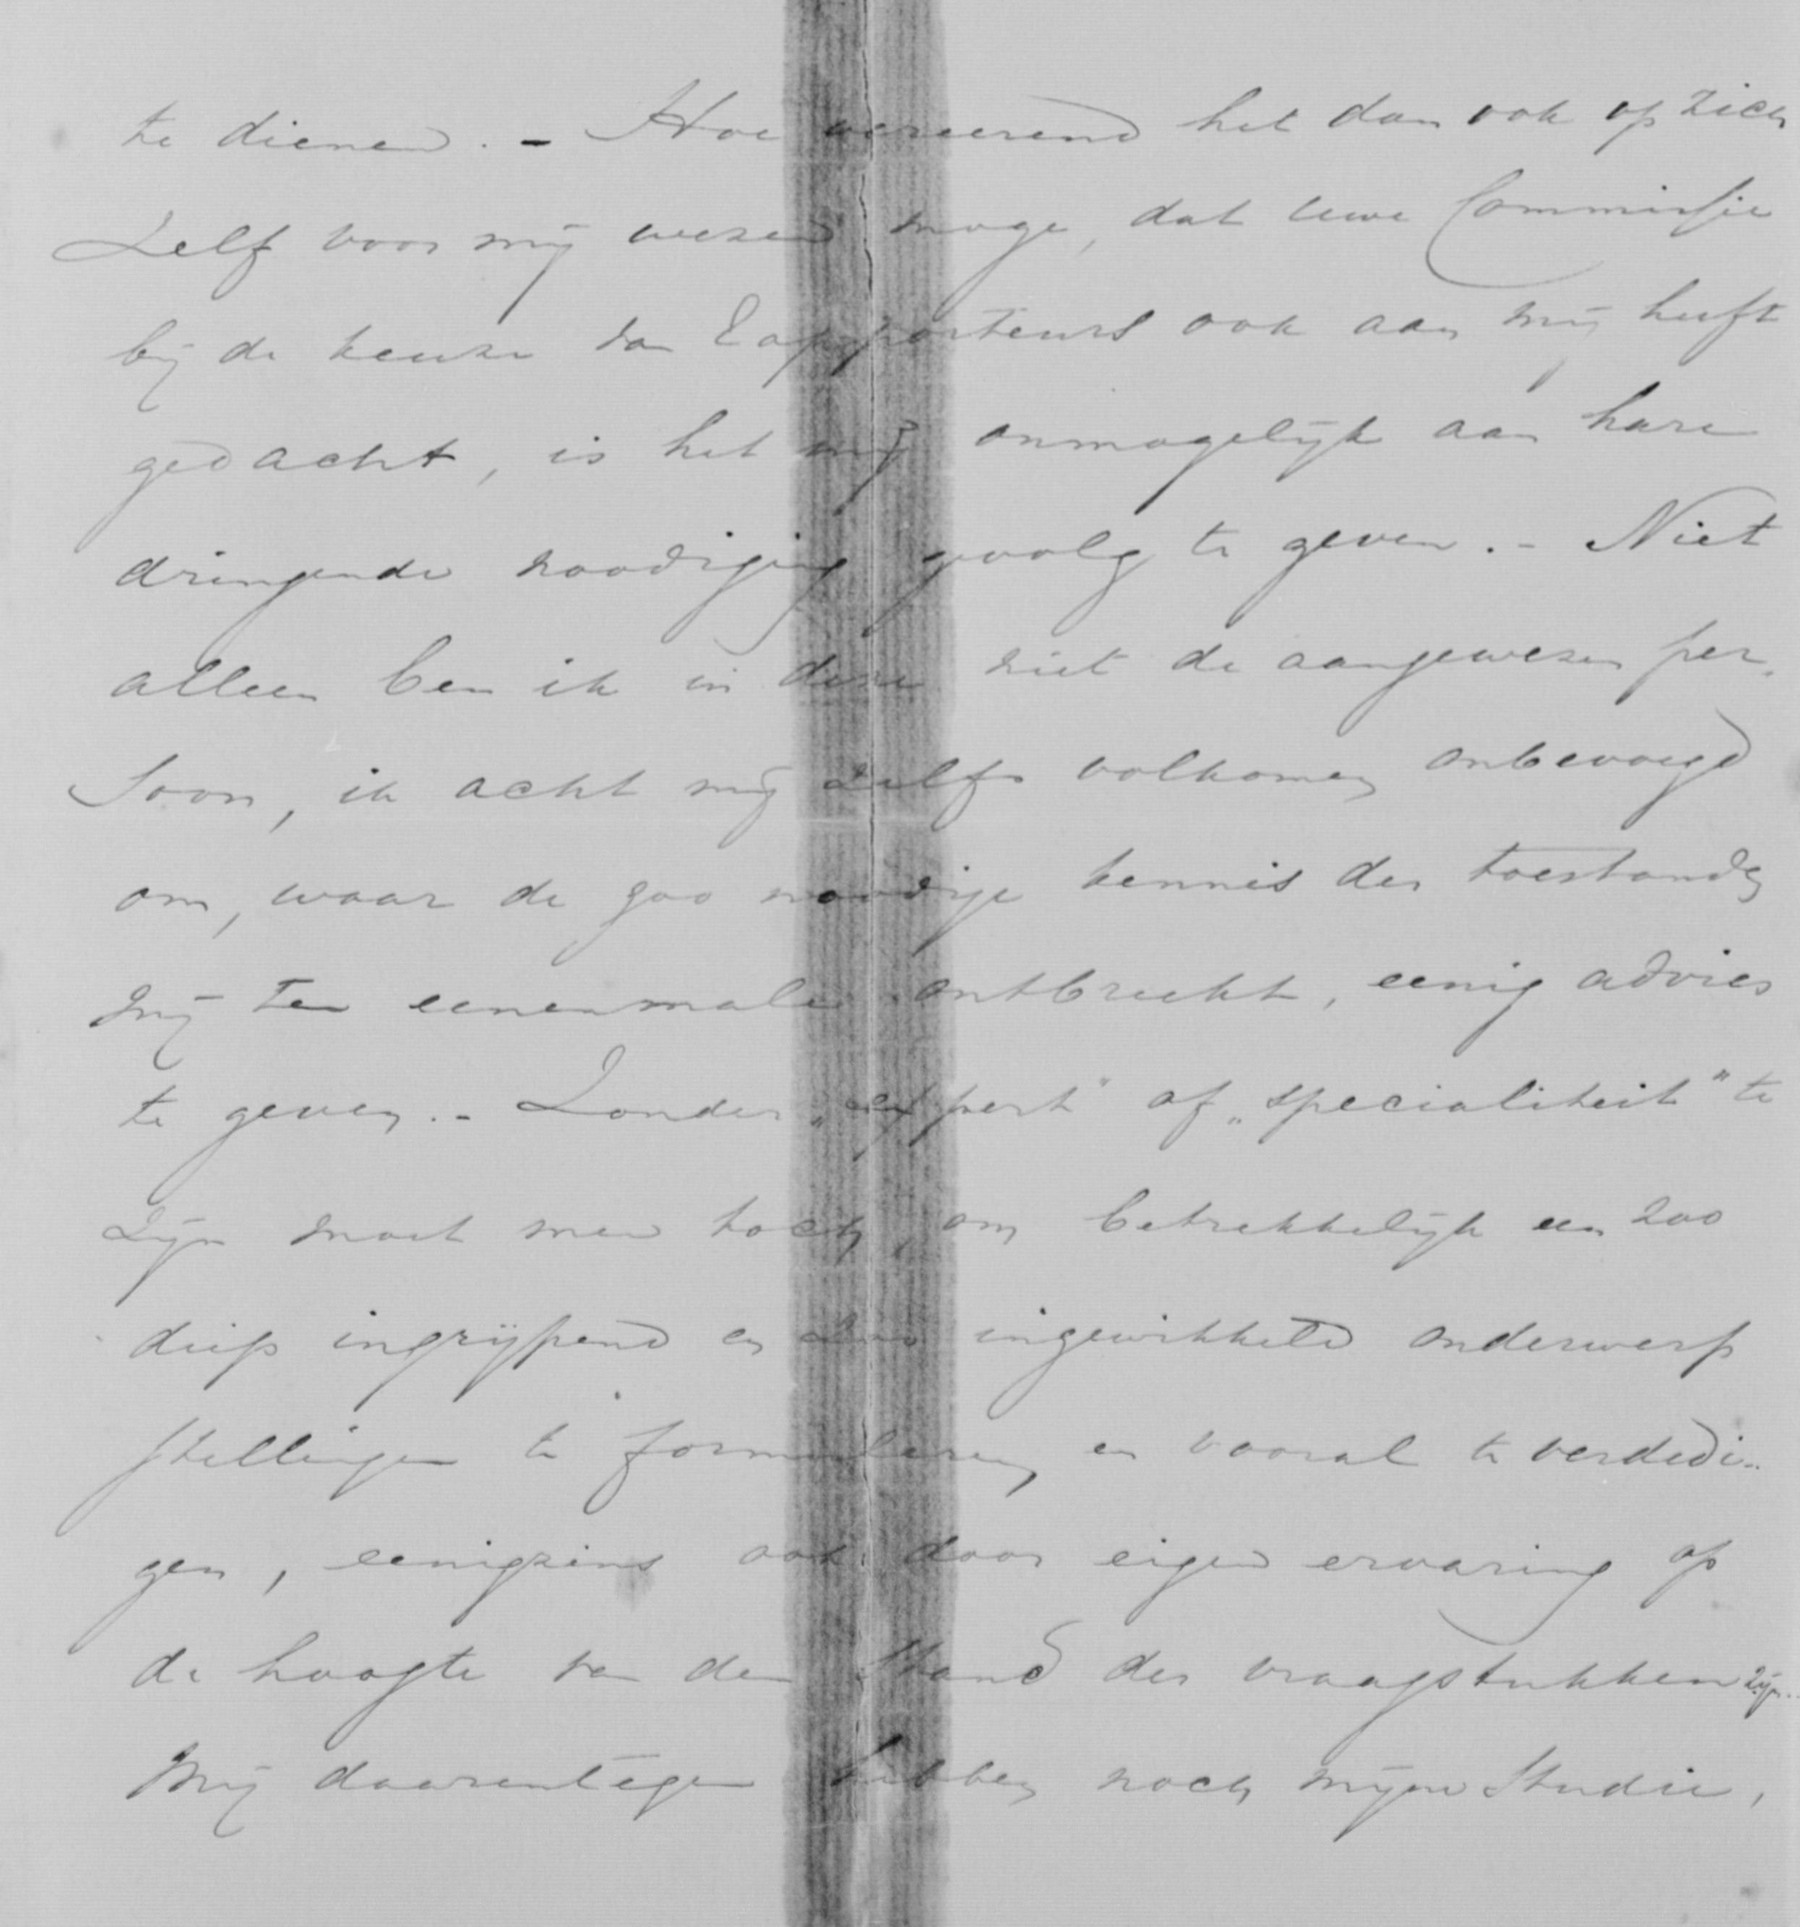 te dienen. - Hoe vereerend het dan ook op zich
zelf voor mij wezen moge, dat uwe Commissie
bij de keuze van Rapporteurs ook aan mij heeft
gedacht, is het mij onmogelijk aan hare
dringende noodiging gevolg te geven. - Niet
alleen ben ik in deze niet de aangewezen per-
soon, ik acht mij zelfs volkomen onbevoegd
om, waar de zoo noodige kennis der toestanden
mij ten eenenmale ontbreekt, eenig advies
te geven. - Zonder „expert" of „specialiteit" te
zijn moet men toch, om betrekkelijk een zoo
diep ingrijpend en zoo ingewikkeld onderwerp
stellingen te formuleren, en vooral te verdedi-
gen, eenigzins ook door eigen ervaring op
de hoogte van den stand der vraagstukken zijn.
Mij daarentegen hebben noch mijne studie,